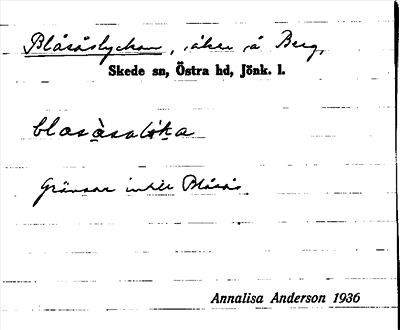 Blåsåslyckan, åker å Berg,
Skede sn, Östra hd, Jönk. l.
blasåsaløka
Gränsar intill Blåsås
Annalisa Anderson 1936